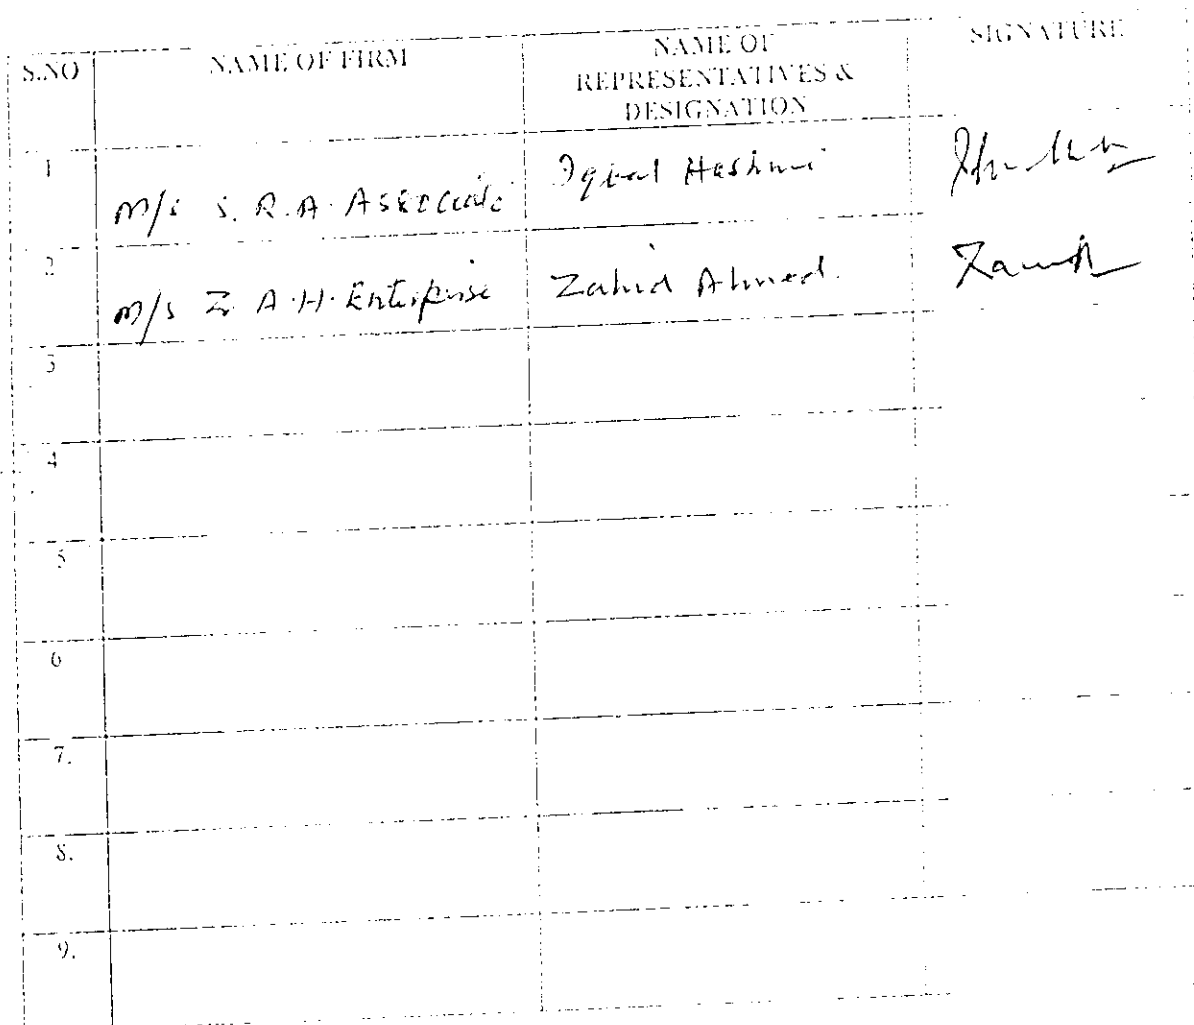 S.NO NAME OF FIRM NAME OF REPRESENTATIVES & DESIGNATION SIGNATURE
1 M/s S.R.A. Associate Iqbal Hashmi
2 M/s Z.A.H. Enterprise Zahid Ahmed.
3
4
5
6
7.
8.
9.